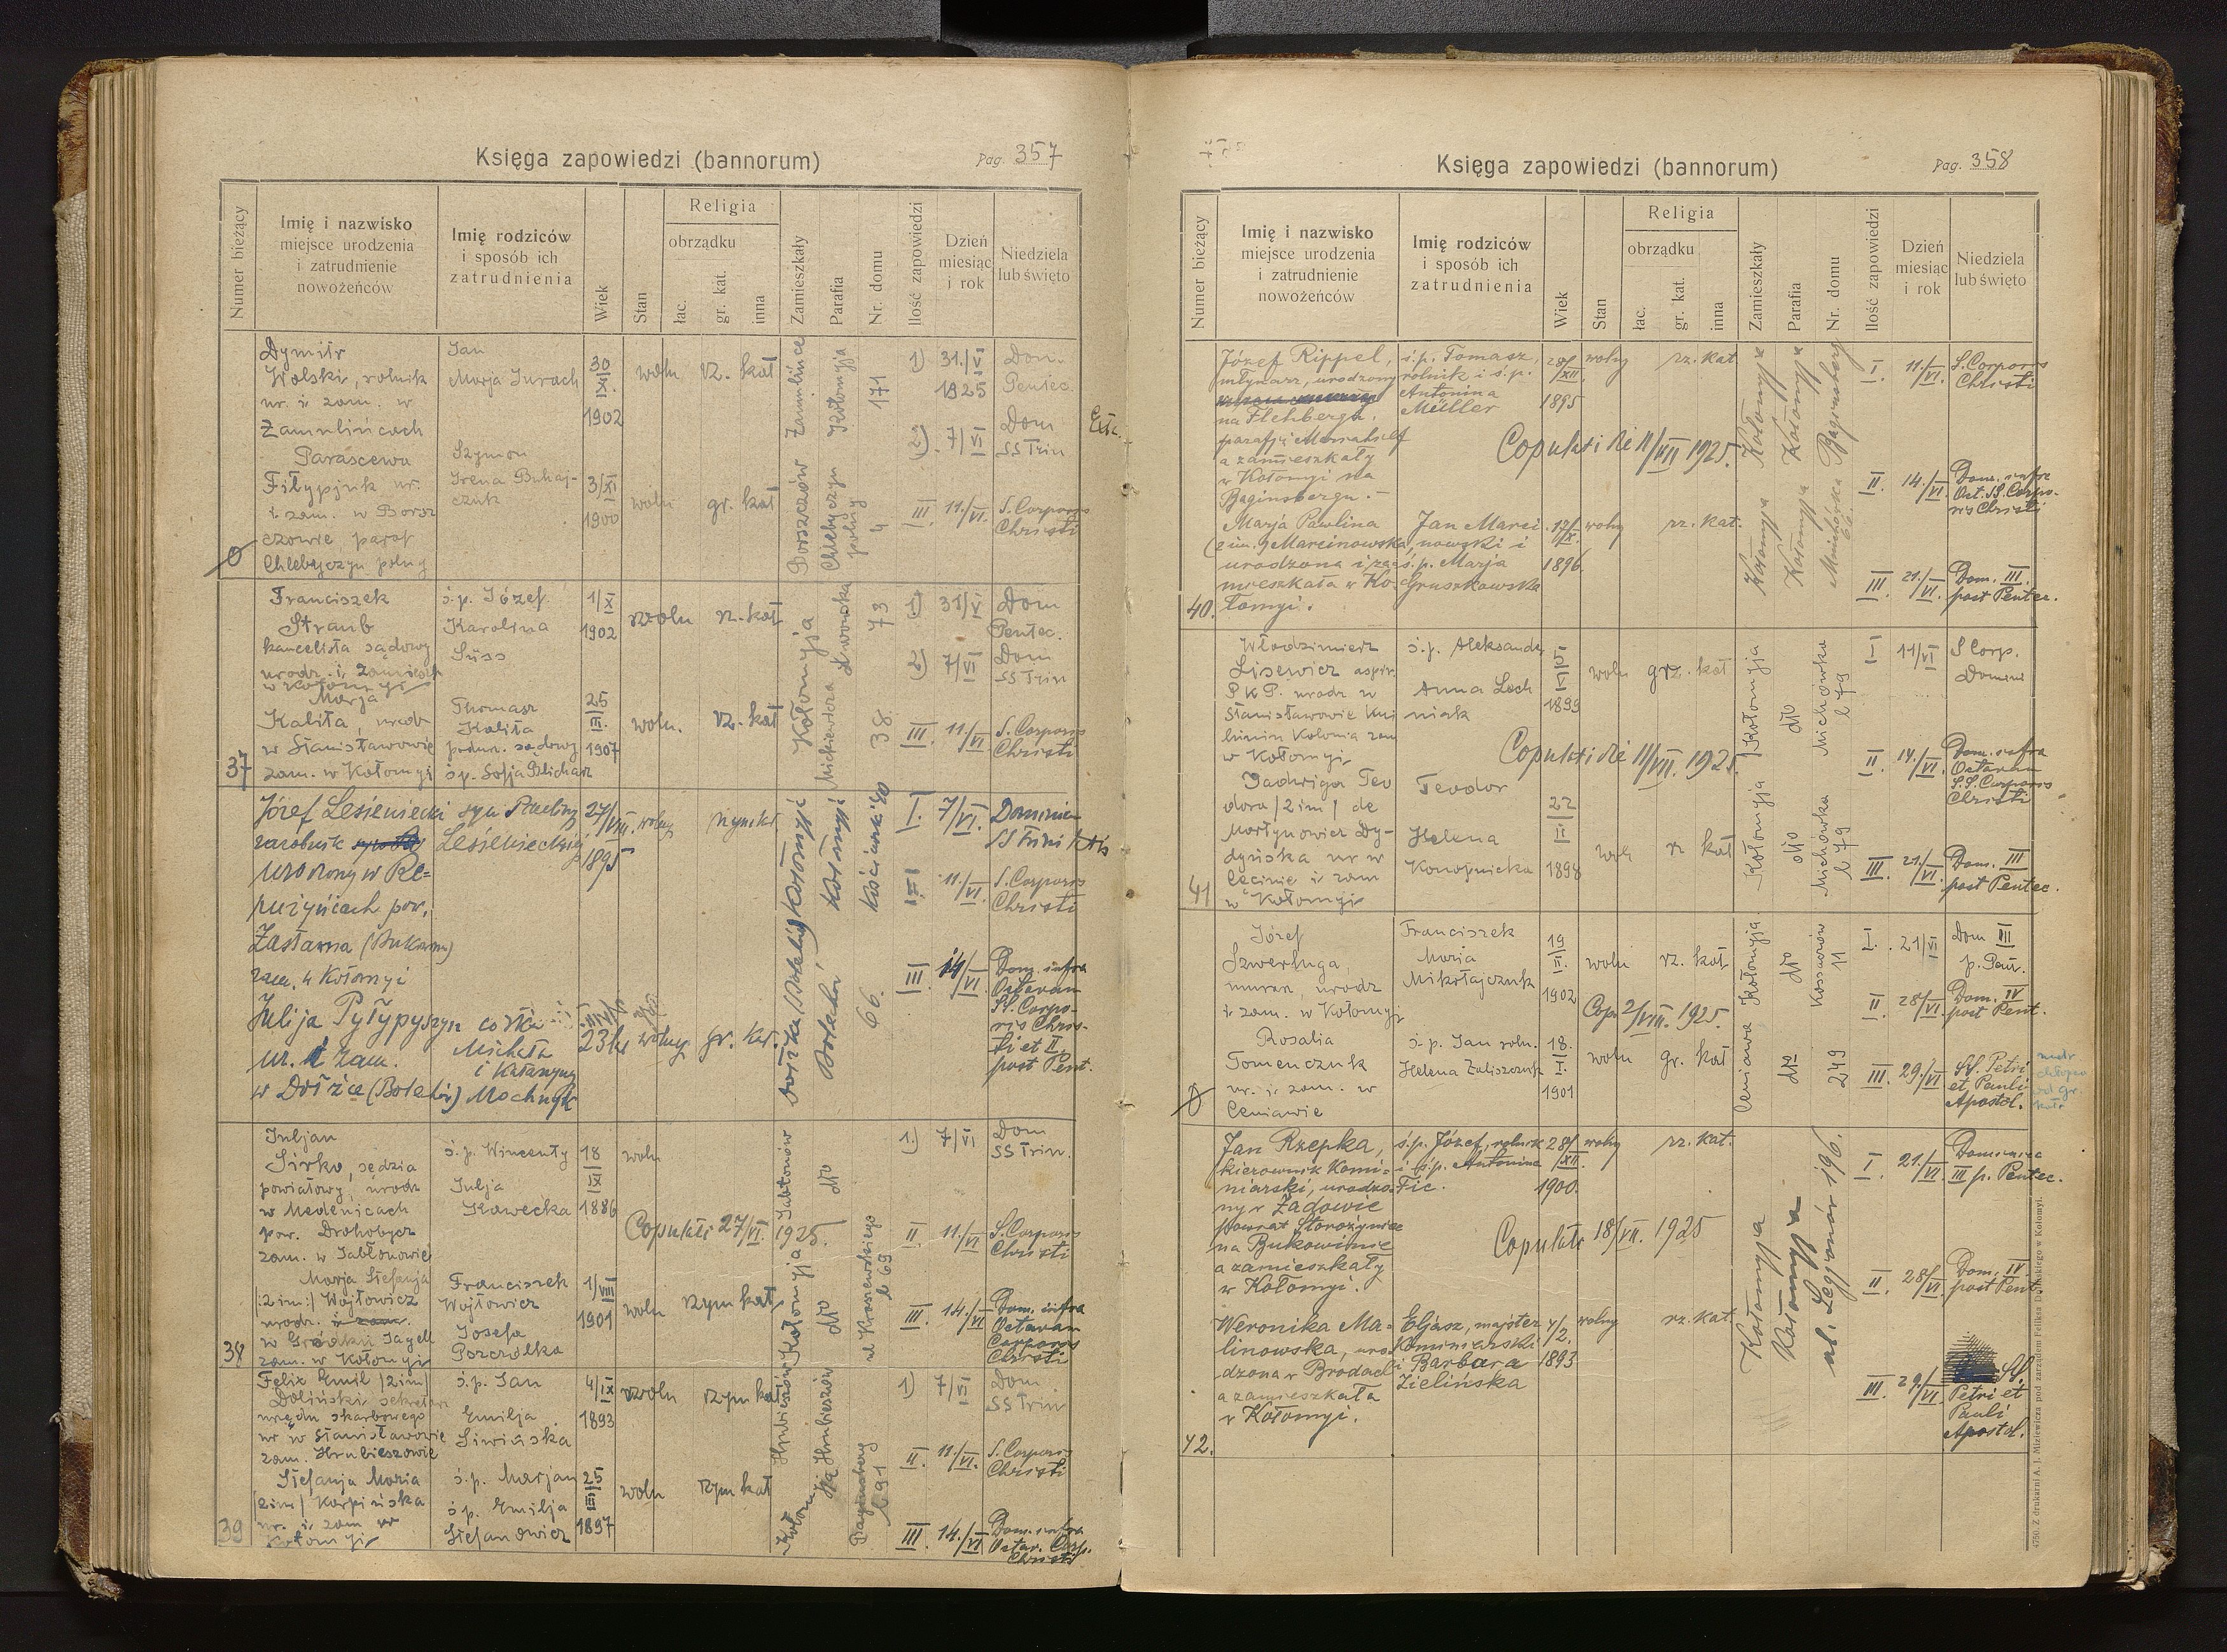 Księga zapowiedzi (bannorum)
Pag. 357
Numer bieżący
Imię i nazwisko
miejsce urodzenia
i zatrudnienie
nowożeńców
Imię rodziców
i sposób ich
zatrudnienia
Wiek
Stan
Religia
obrządku
łac.
gr. kat.
inna
Zamieszkały
Parafia
Nr. domu
Ilość zapowiedzi
Dzień
miesiąc
i rok
Niedziela
lub święto
Dymitr
Wolski, rolnik
ur. i zam. w
Zamulińcach
Jan
Marja Jurach
30
IX.
1902
woln
rz. kat
Zamulińce
Kołomyja
171
1) 31./V
1925
Dom.
Pentec.
2) 7/VI
Dom
SS Trin
Parascewa
Filypjuk ur.
i zam. w Borsz
czowie, paraf
Chlebyczyn polny
Szymon
Irena Buhaj-
czuk
3/XI
1900
woln
gr. kat
Borszczów
Chlebyczyn
polny
4
III. 11./VI.
S. Corporis
Christi
Franciszek
Straub
kancelista sądowy
urodz. i zamieszk
w Kołomyi
ś.p. Józef
Karolina
Süss
1/X
1902
woln
rz. kat
Kołomyja
Lwowska
73
1) 31/V
Dom
Pentec.
2) 7/VI
Dom
SS Trin
37
Marja
Kalita, urodz
w Stanisławowie
zam. w Kołomyi
Thomasz
Kalita
podur. sądowy
śp. Sofja Blicharz
25
III.
1907
woln.
rz. kat
Mickiewicza
38
III. 11./VI.
S. Corporis
Christi
Józef Lesieniecki
zarobnik
urodzony w Re=
pużyńcach pow.
Zastawna (Bukowina)
zam. w Kołomyi
syn Pauliny
Lesienieckiej
27/VIII.
1895
wolny
rzymkt
Kołomyja
Kołomyja
Kościuszki 40
I. 7/VI.
Dominica
SS Trinitatis
II 11./VI.
S. Corporis
Christi
III 14/VI.
Dom. infra
Octavam
SS. Corpo-
ris Chris-
ti et II
post Pent.
Julija Pyłypyszyn
ur. i zam.
w Dołżce (Bolechów)
córka
Michała
i Katarzyny
Mochnyk
23 l.
wolny
gr. kat.
Dołżka (Bolechów)
Bolechów
66.
Juljan
Sirko, sędzia
powiatowy, urodz
w Medenicach
pow. Drohobycz
zam. w Jabłonowie
ś.p. Wincenty
Julja
Kawecka
18
IX
1886
woln
Jabłonów
dto
1.) 7/VI
Dom
SS Trin.
Copulati 27/VI. 1925.
II 11./VI
S. Corporis
Christi
38
Marja Stefanja
/:2 im:/ Wojtowicz
urodz.
w Gródku Jagiell
zam. w Kołomyi
Franciszek
Wojtowicz
Josefa
Pszczółka
1/VIII
1901
woln
rzym kat
Kołomyja
dto
ul Kraszewskiego
l 69
III. 14./VI
Dom. infra
Octavam
Corporis
Christi
Felix Emil /2 im/
Doliński, sekretarz
urzędu skarbowego
ur w Stanisławowie
zam. Hrubieszowie
ś.p. Jan
Emilja
Siwińska
4/IX
1893
woln
rzym kat
Hrubieszów
Hrubieszów
1) 7/VI
Dom
SS Trin
II 11./VI.
S. Corporis
Christi
39
Stefanja Maria
/2 im/ Karpińska
ur. i zam w
Kołomyi
ś.p. Marjan
ś p. Emilja
Stefanowicz
25
III
1897
woln
rzym kat
Kołomyja
Baginsberg
l 691
III. 14./VI
Dom. infra
Octav. Corp.
Christi
Księga zapowiedzi (bannorum)
Pag. 358
Numer bieżący
Imię i nazwisko
miejsce urodzenia
i zatrudnienie
nowożeńców
Imię rodziców
i sposób ich
zatrudnienia
Wiek
Stan
Religia
obrządku
łac.
gr. kat.
inna
Zamieszkały
Parafia
Nr. domu
Ilość zapowiedzi
Dzień
miesiąc
i rok
Niedziela
lub święto
Józef Rippel,
młynarz, urodzony
na Flehbergu,
a zamieszkały
w Kołomyi na
Baginsbergu.-
ś.p. Tomasz,
rolnik i ś.p.
Antonina
Müller
28/XII.
1895
wolny
rz. kat.
Kołomyja
Kołomyja
Baginsberg
I. 11./VI.
S. Corporis
Christi
Copulati die 11/VII 1925.
II. 14./VI.
Dom. infra
Oct. SS. Corpo-
ris Christi
Marja Pawlina
(2 im.) Marcinowska,
urodzona i za-
mieszkała w Ko-
łomyi.
40.
Jan Marci-
nowski i
ś.p. Marja
Gruszkowska
17/IX.
1896
wolny
rz. kat.
Kołomyja
Kołomyja
Mnichówka
66.
III. 21./VI.
Dom. III.
post Pentec.
Włodzimierz
Lisewicz aspir.
P K P. urodz w
Stanisławowie Kni
hinin Kolonia zam
w Kołomyi
ś.p. Aleksander
Anna Loch
niak
15
VI
1899
woln
grz. kat
Kołomyja
dto
Michówka
l 79
I 11/VI
S Corp.
Domini
Copulati die 11/VII. 1925.
II 14./VI.
Dom. infra
Octavam
S.S. Corporis
Christi
Jadwiga Teo
dora /2 im/ de
Martynowicz Dy-
dyńska ur w
Łęcinie i zam
w Kołomyi
41
Teodor
Helena
Konopnicka
22
II
1898
woln
rz kat
Kołomyja
dto
Michówka
l 79
III. 21./VI.
Dom. III
post Pentec.
Józef
Szwerluga,
murarz, urodz
i zam. w Kołomyi
Franciszek
Maria
Mikołajczuk
19
II.
1902
woln
rz. kat
Kołomyja
dto
Kossaków
11
I. 21/VI
Dom III
p. Pent.
Cop. 2/VIII. 1925.
II 28/VI.
Dom. IV
post Pent.
Rosalia
Tomenczuk
ur. i zam. w
Ceniawie
ś.p. Jan roln.
Helena Zaliszczuk
18.
I.
1901
woln
gr. kat
Ceniawa
dto
249
III. 29./VI
SS. Petri
et Pauli
Apostol.
Jan Rzepka,
kierownik Komi=
niarski, urodzo-
ny w Zadowie
powiat Storożyniec
na Bukowinie
a zamieszkały
w Kołomyi.
ś.p. Józef, rolnik
i ś.p. Antonina
Fic.
28/XII.
1900.
wolny
rz. kat.
I 21./VI
Dominica
III p. Pentec.
Copulati 18/VII. 1925
Kołomyja
Kołomyja
ul. Legjonów 196.
II 28/VI.
Dom. IV.
post Pent.
Weronika Ma=
linowska, uro-
dzona w Brodach
a zamieszkała
w Kołomyi.
42.
Eljasz, majster
Kominiarski
i Barbara
Zielińska
4/2.
1893
wolny
rz. kat.
III. 29/VI.
SS.
Petri et
Pauli
Apostol.
4750. Z drukarni A. J. Miziewicza pod zarządem Feliksa D...skiego w Kołomyi.